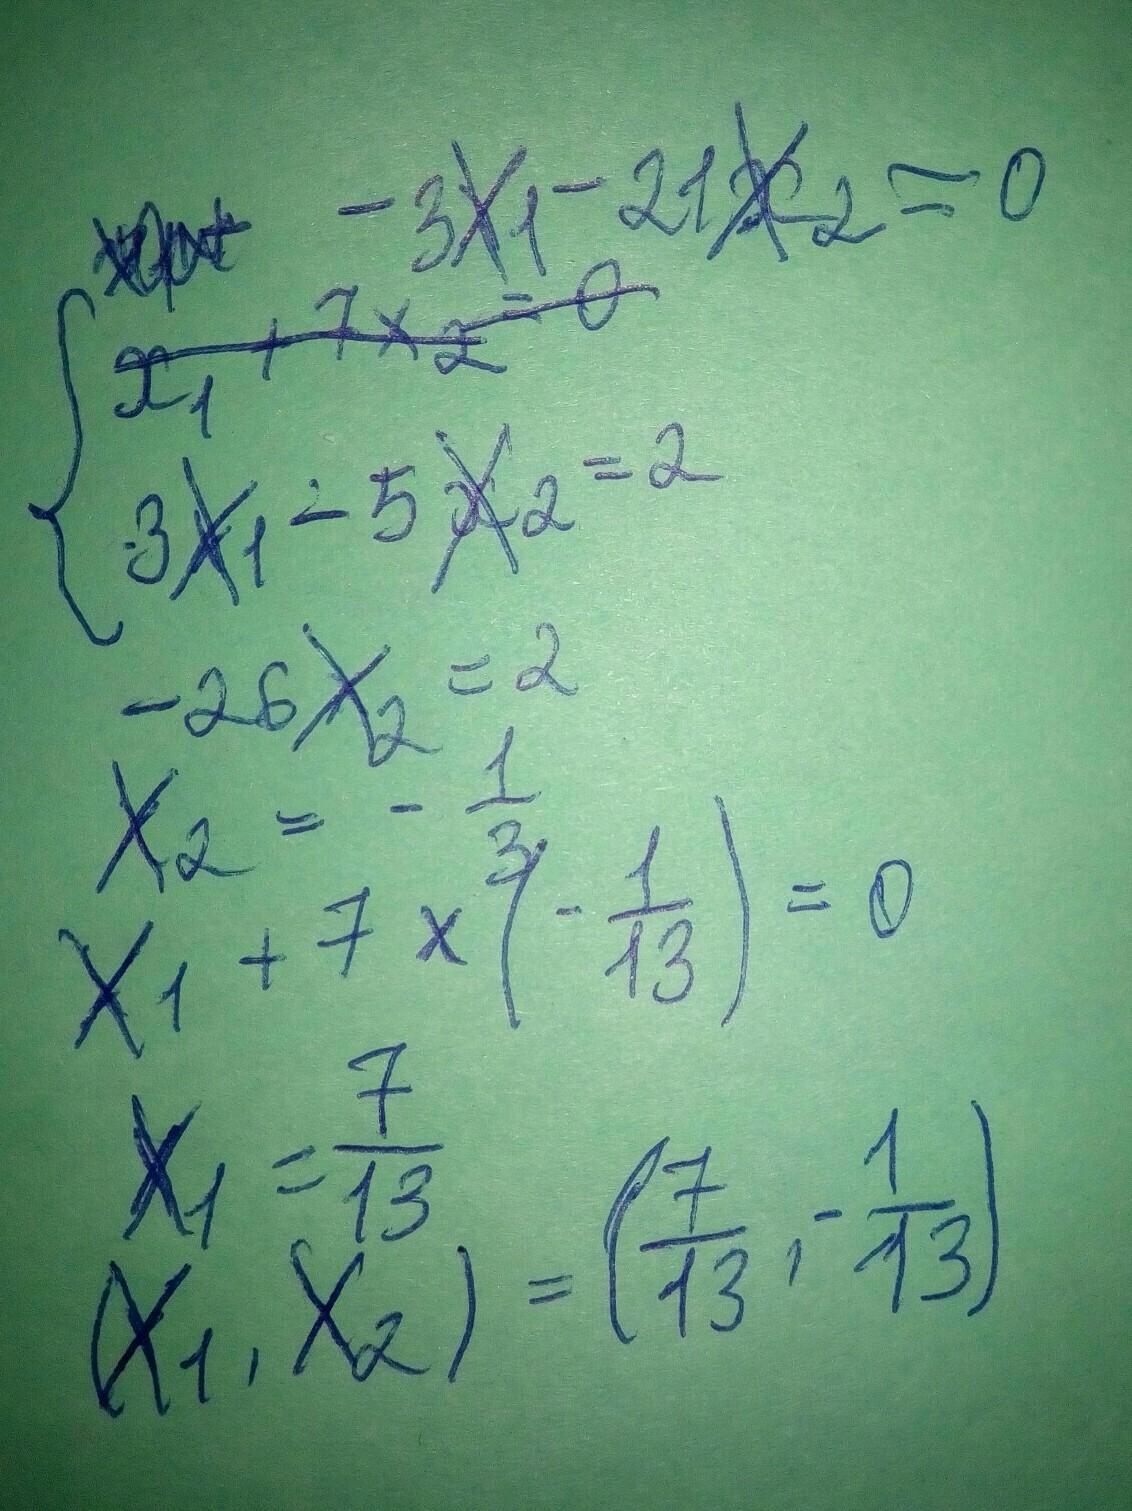 -3X₁ - 21X₂ = 0
x₁ + 7x₂ = 0
3X₁ - 5X₂ = 2
-26X₂ = 2
X₂ = - 1/3
X₁ + 7 × (- 1/13) = 0
X₁ = 7/13
(X₁, X₂) = (7/13, - 1/13)